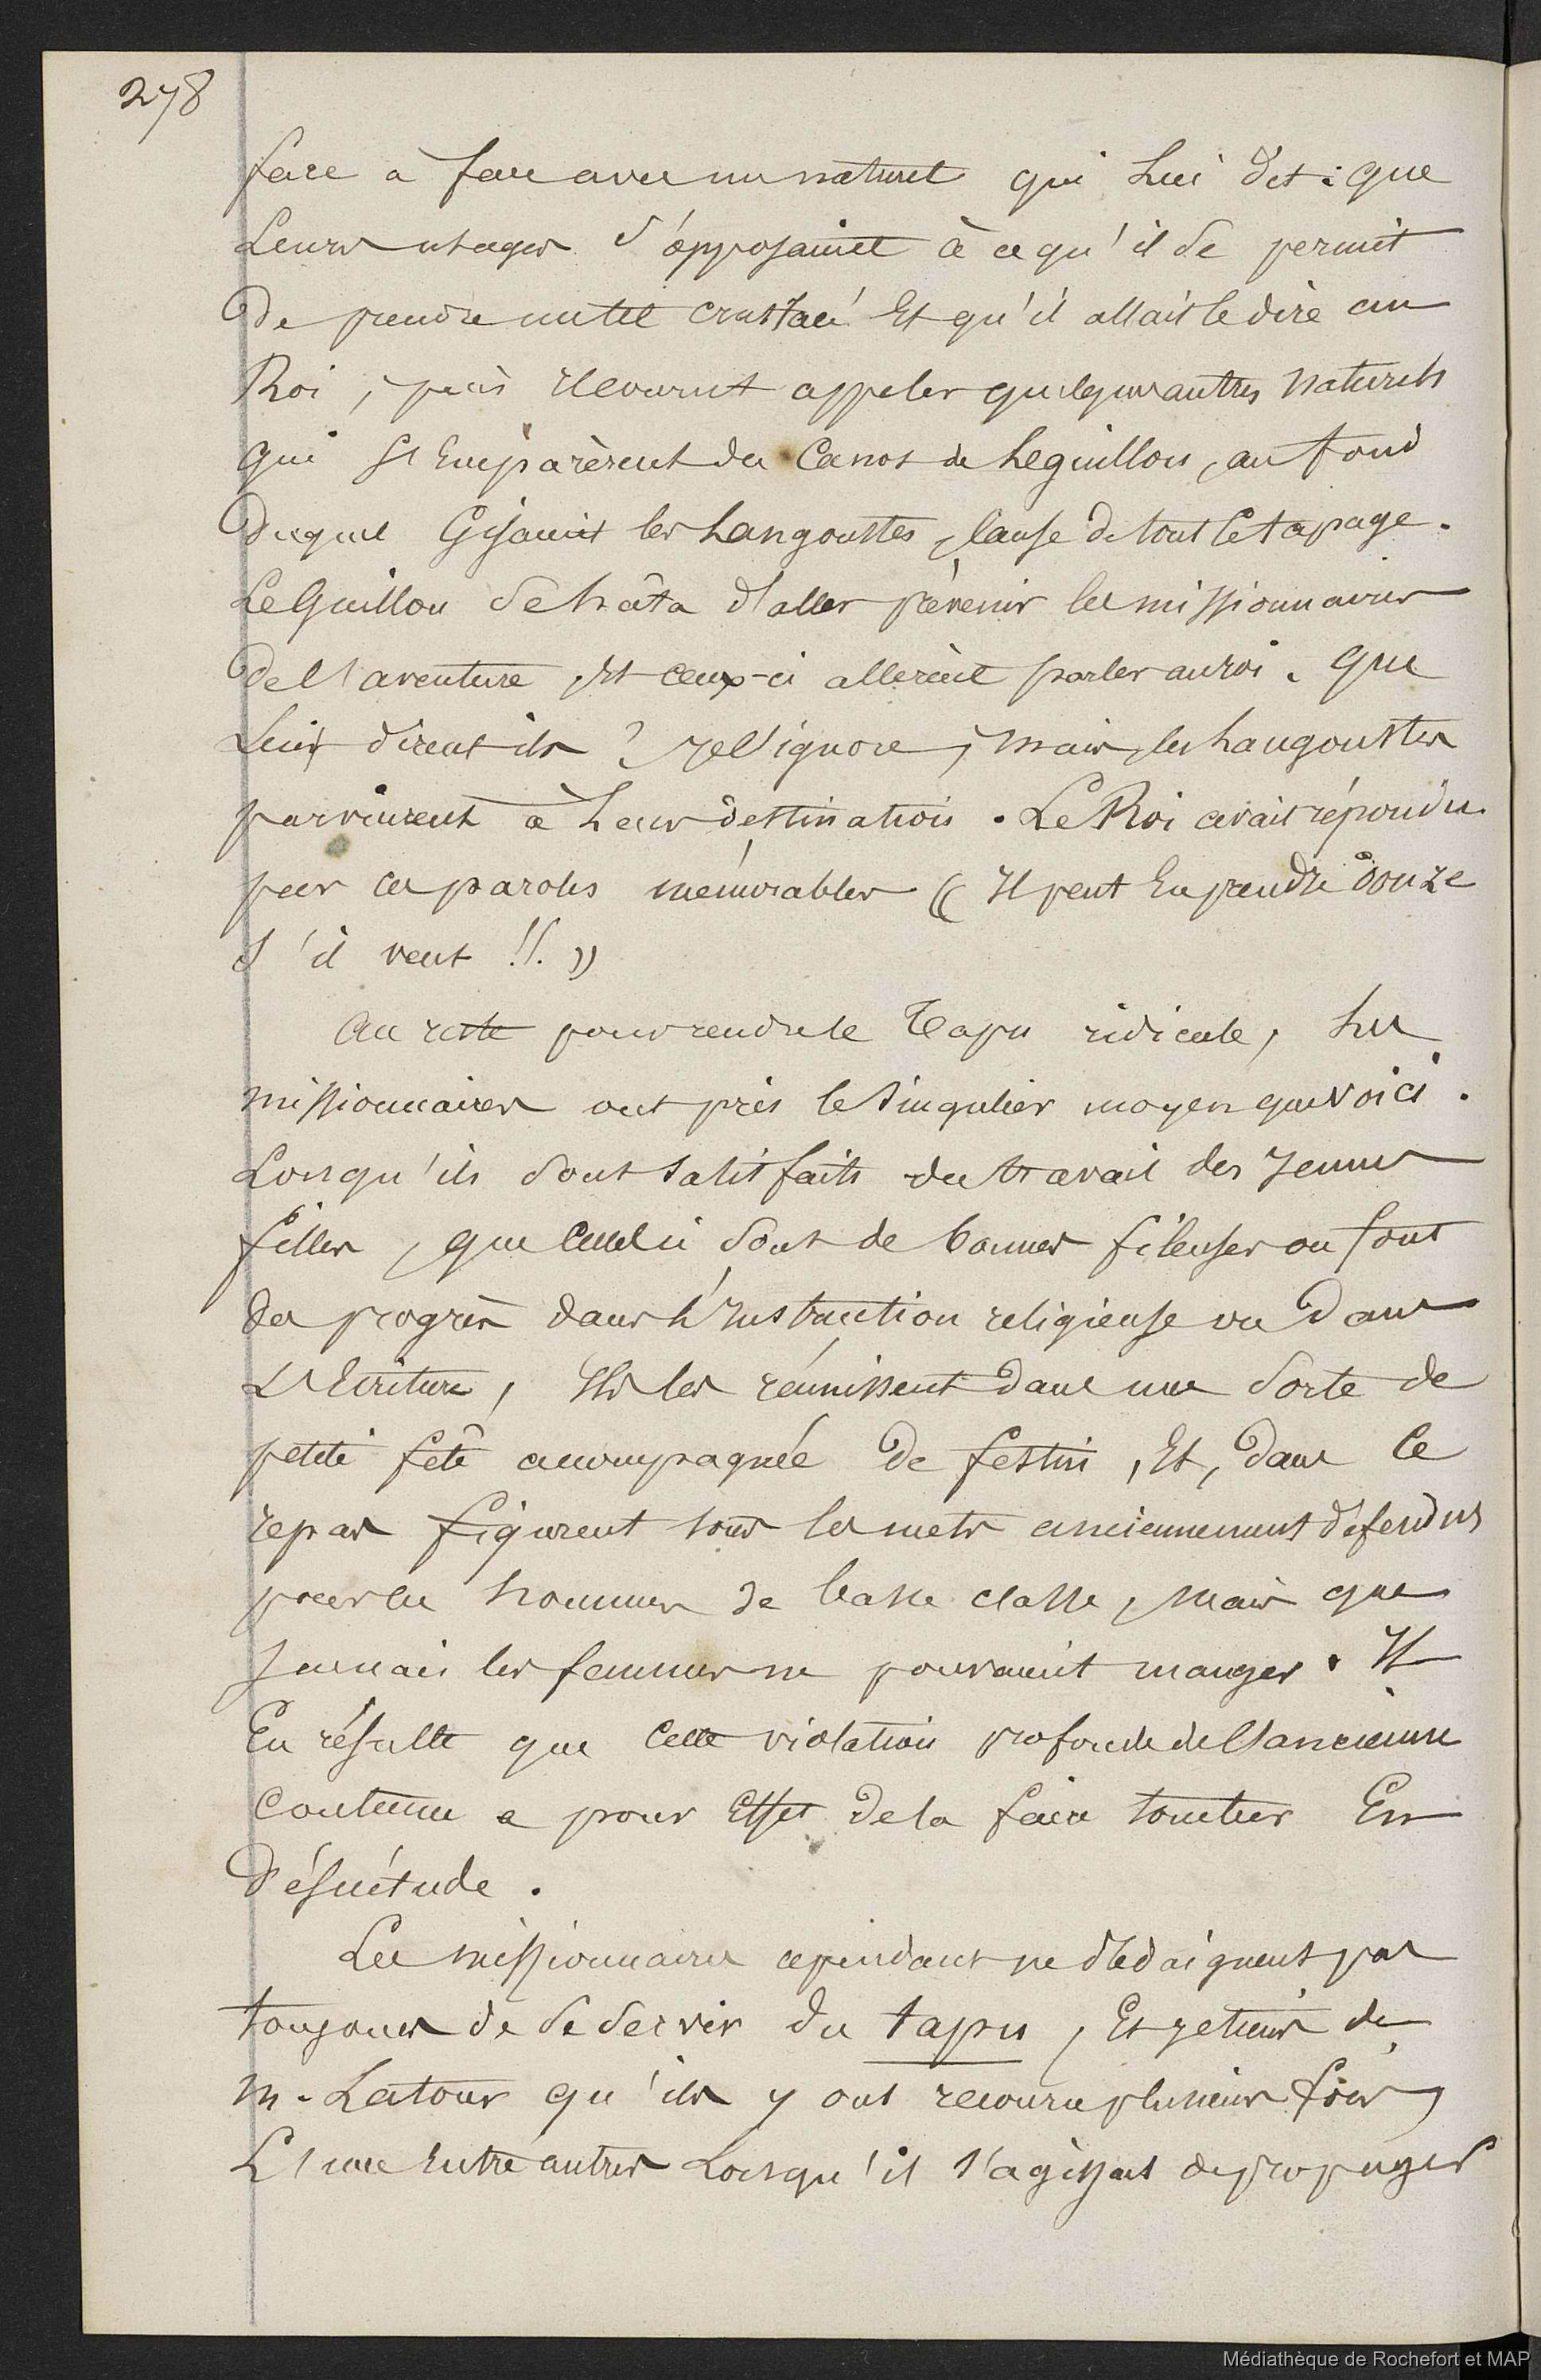 278
face à face avec un naturel qui Lui dit : que
Leurs usages s'opposaient à ce qu'il se permit
De prendre un tel crustacé Et qu'il allait le dire au
Roi ; puis il courut appeler quelques autres naturels
qui s'Emparèrent du Canot de Leguillou, au fond
Duquel Gisaient les Langoustes, Cause de tout Ce tapage.
Le Guillou se hâta d'aller prévenir les missionnaires
De l'aventure, Et ceux-ci allerent parler au roi. que
Lui dirent ils ? Je l'ignore ; mais, les Langoustes
parvinrent à Leur destination. Le Roi avait répondu
par ces paroles mémorables (( Il peut En prendre douze
s'il veut !!. ))
Au reste pour rendre le Tapu ridicule, Les
missionnaires ont pris le singulier moyen que voici.
Lorsqu'ils sont satisfaits du travail des Jeunes
filles, que Celles ci sont de bonnes fileuses ou font
des progrès dans L'Instruction religieuse ou Dans
L'Ecriture, Ils les réunissent dans une sorte de
petite fête accompagnée De festin, Et, dans Ce
repas figurent tous les mets anciennement défendus
pour les hommes de basse classe, mais que
Jamais les femmes ne pouvaient manger. Il
En résulte que Cette violation profonde de l'ancienne
Coutume a pour Effet de la faire tomber En
Désuétude.
Les missionnaires cependant ne dédaignent pas
toujours de se servir du tapu, Et je tiens de
m. Latour qu'ils y ont recouru plusieurs fois,
L'une Entre autres Lorsqu'il s'agissait de propager
Médiathèque de Rochefort et MAP